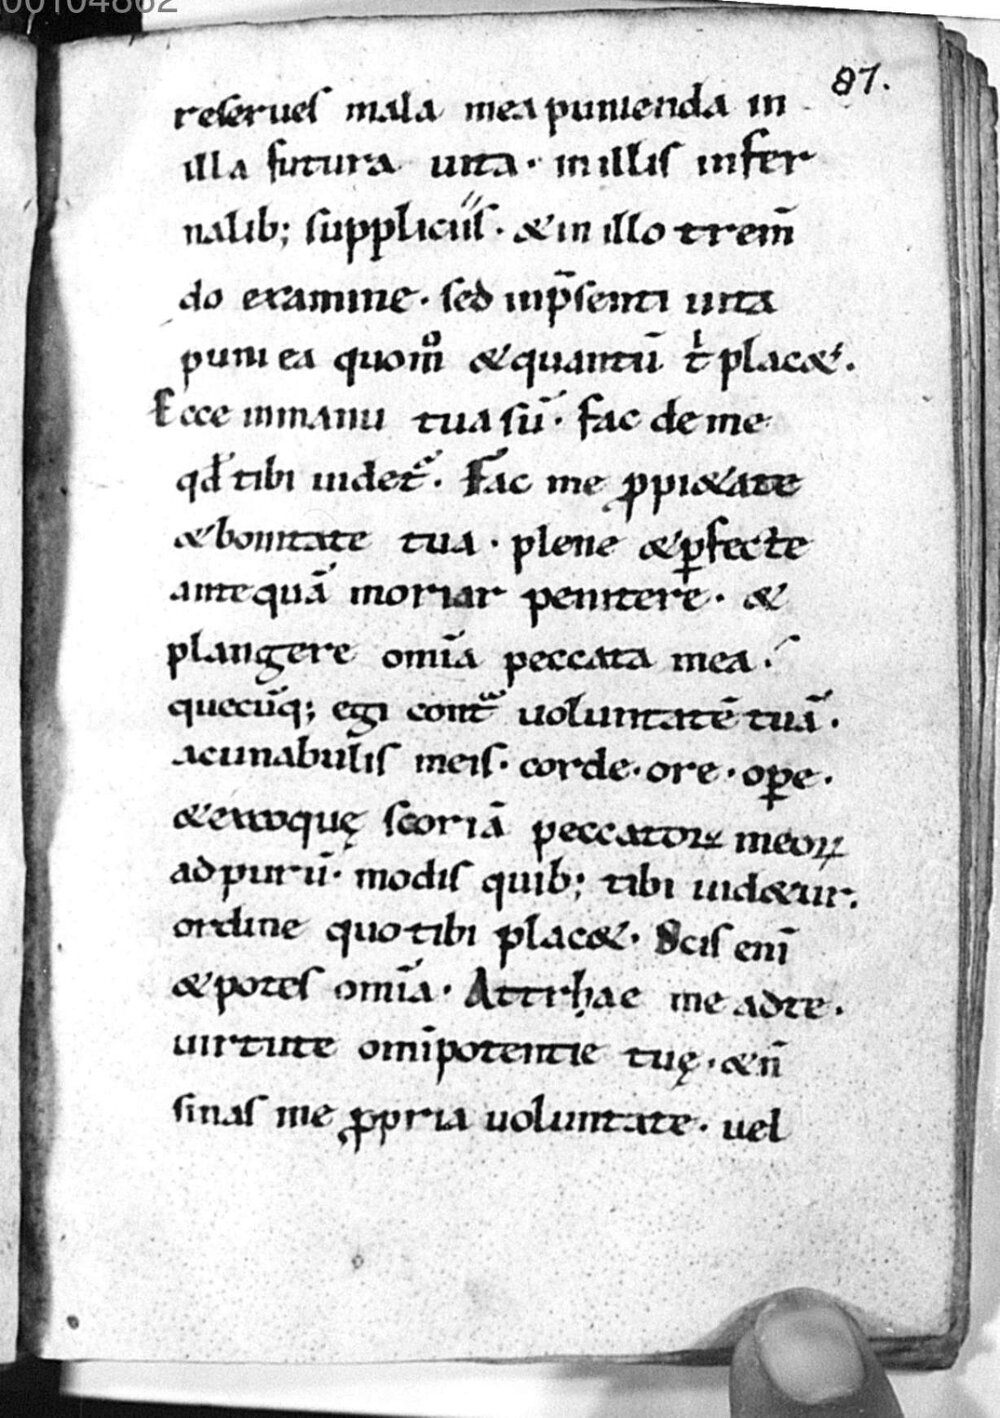 00104862
87.
reserues mala mea punienda in
illa futura uita · in illis infer
nalib; suppliciis · & in illo trem̄
do examine · sed inp̄senti uita
puni ea quom̊ & quantū t̄ plac&·
Ecce inmanu tua sū · fac de me
qd̄ tibi uidet᷑ · Fac me ꝓpi&ate
& bonitate tua · plene & ꝑfecte
antequā moriar penitere · &
plangere om̄ia peccata mea ·
quecūq; egi contᷓ uoluntatē tuā ·
acunabulis meis · corde · ore · oꝑe ·
& excoquę scoriā peccatoꝝ meoꝝ
ad purū · modis quib; tibi uid&ur ·
ordine quo tibi plac& · Scis eni̅
& potes om̄ia · Attrhae me adte ·
uirtute omīpotentie tuę · & n̄
sinas me ꝓpria uoluntate · uel